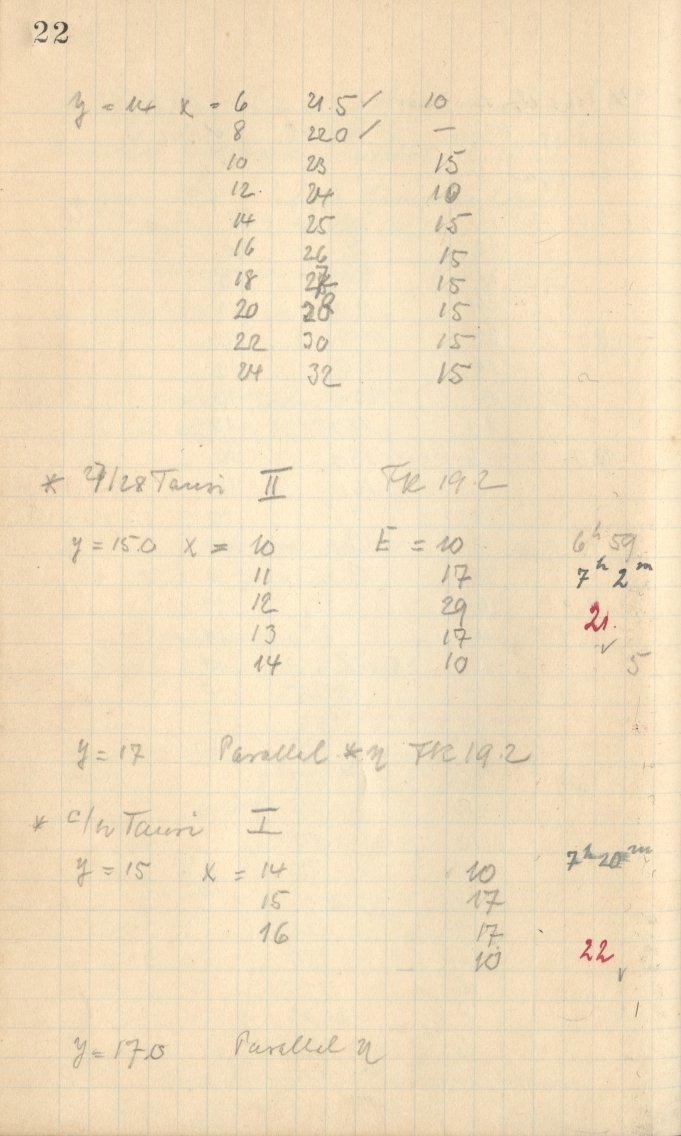 22
y = 14 x = 6 21.5 ✓ 10
8 220 ✓ —
10 23 15
12 24 10
14 25 15
16 26 15
18 27 15
20 28 15
22 30 15
24 32 15
* 27/28 Tauri II FK 19.2
y = 15.0 x = 10 E = 10 6h 59
11 17 7h 2m
12 29 21.
13 17 ✓
14 10 5
y = 17 Parallel * η FK 19.2
* c/h Tauri I
7h 20m
y = 15 x = 14 10
15 17
16 17
10 22 ✓
y = 17.0 Parallel η